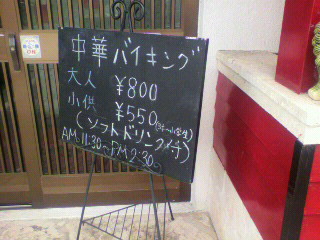 中華バイキング
大人 ¥800
小供 ¥550
(ソフトドリンク付)
AM11:30~PM2:30